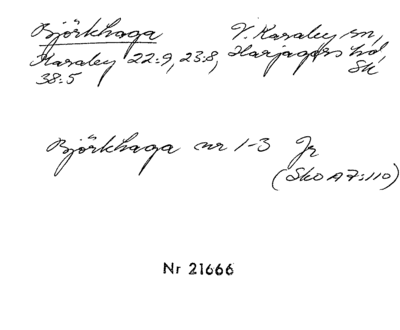 Björkhaga V. Karaby sn,
Karaby 22:9, 23:8, Harjagers hd
38:5 Sk
Björkhaga nr 1-3 Jr
(SkO A7:110)
Nr 21666